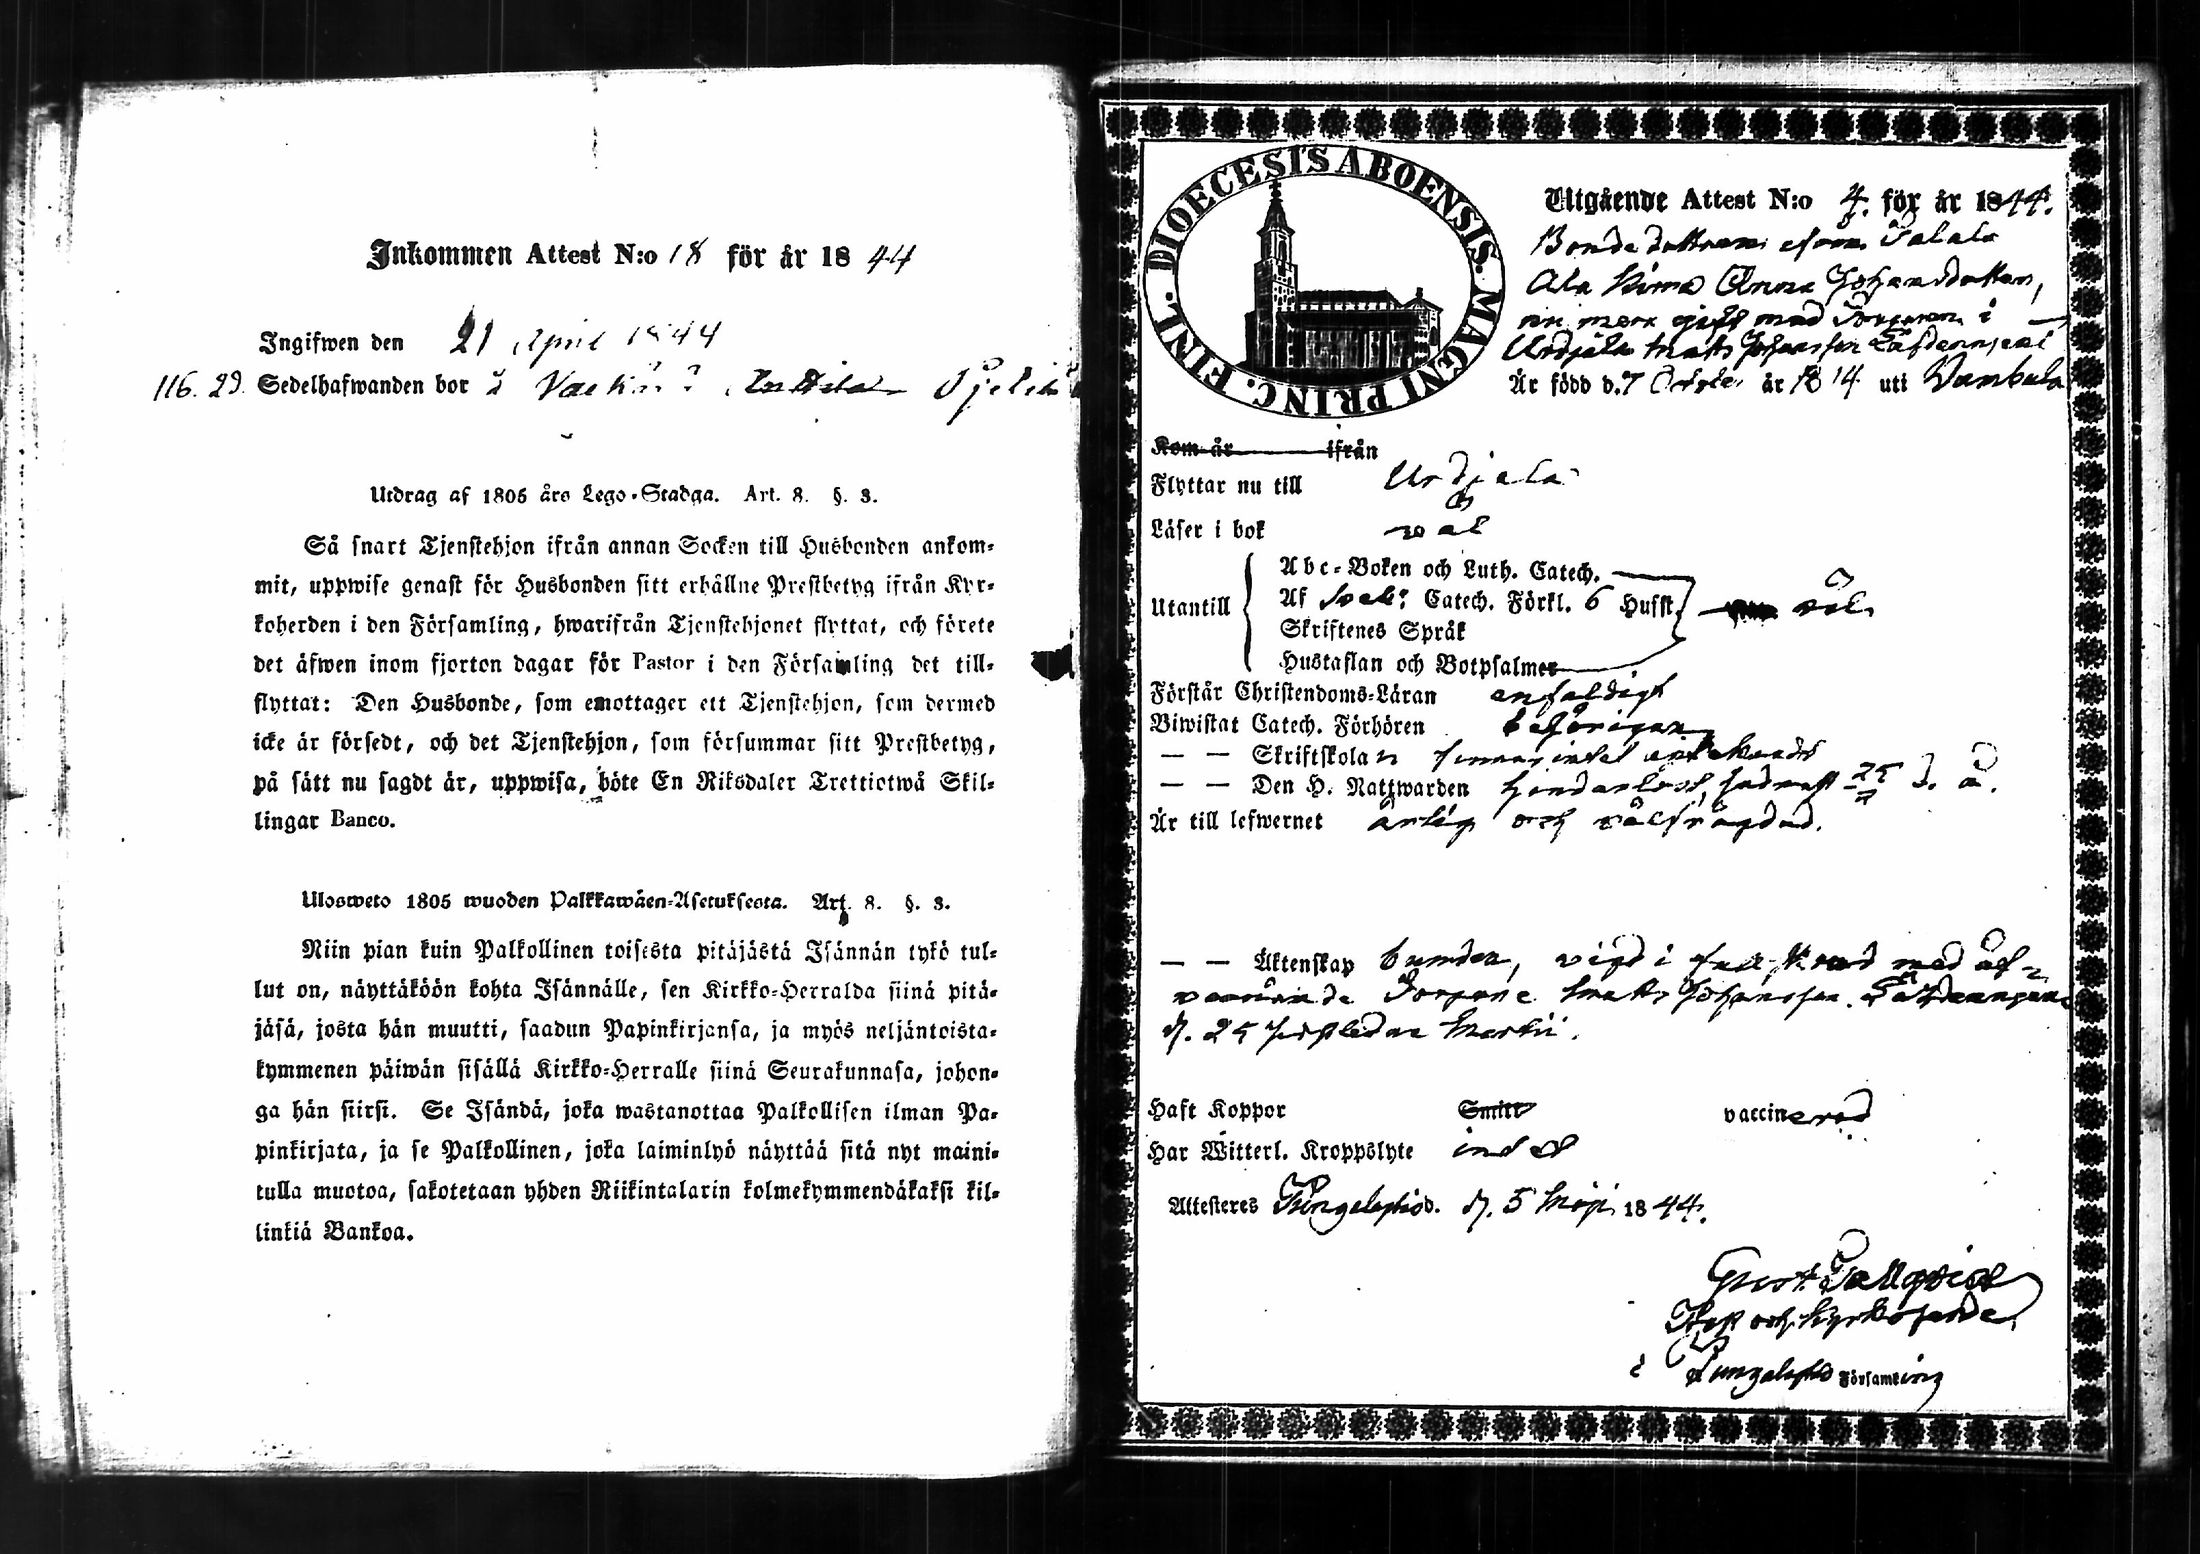 Inkommen Attest N:o 18 för år 1844
Ingifwen den 21 April 1844
116. 29. Sedelhafwanden bor i
Utdrag af 1805 års Lego-Stadga. Art. 8. §. 3.
Så snart Tjenstehjon ifrån annan Socken till Husbonden ankom-
mit, uppwise genast för Husbonden sitt erhållne Prestbetyg ifrån Kyr-
koherden i den Församling, hwarifrån Tjenstehjonet flyttat, och förete
det äfwen inom fjorton dagar för Pastor i den Församling det till-
flyttat: Den Husbonde, som emottager ett Tjenstehjon, som dermed
icke är försedt, och det Tjenstehjon, som försummar sitt Prestbetyg,
på sätt nu sagdt är, uppwisa, böte En Riksdaler Trettiotwå Skil-
lingar Banco.
Ulosweto 1805 wuoden Palkkawäen-Asetuksesta. Art. 8. §. 3.
Niin pian kuin Palkollinen toisesta pitäjästä Isännän tykö tul-
lut on, näyttäköön kohta Isännälle, sen Kirkko-Herralda siinä pitä-
jäsä, josta hän muutti, saadun Papinkirjansa, ja myös neljäntoista-
kymmenen päiwän sisällä Kirkko-Herralle siinä Seurakunnasa, johon-
ga hän siirsi. Se Isändä, joka wastanottaa Palkollisen ilman Pa-
pinkirjata, ja se Palkollinen, joka laiminlyö näyttää sitä nyt maini-
tulla muotoa, sakotetaan yhden Riikintalarin kolmekymmendäkaksi kil-
linkiä Bankoa.
DIOECESIS ABOENSIS. MAGNI PRINC. FINL.
Utgående Attest N:o 4. för år 1844.
Bondedottren ifrån
Ala Anna Johansdotter,
gift med i
Urdjala Matts Johansson
Är född d. 7 år 1814 uti
Kom år ifrån
Flyttar nu till Urdjala
Läser i bok väl
Utantill
Abc-Boken och Luth. Catech.
Af Sveb: Catech. Förkl. 6 Hufst. väl
Skriftenes Språk
Hustaflan och Botpsalmer
Förstår Christendoms-Läran enfaldigt
Biwistat Catech. Förhören behörigen
— — Skriftskolan finnes intet
— — Den H. Nattwarden hinderlöst, sednast d. å.
Är till lefwernet ärlig och välfrägdad.
— — Äktenskap bunden, vigd i med
Matts Johansson
d. 25 sistledne Martii.
Haft Koppor Smitt vaccinerad
Har Witterl. Kroppslyte intet
Attesteres Pungalaitio d. 5 1844.
Gust. Tallqvist
och Kyrkoherde
i Pungalaitio Församling